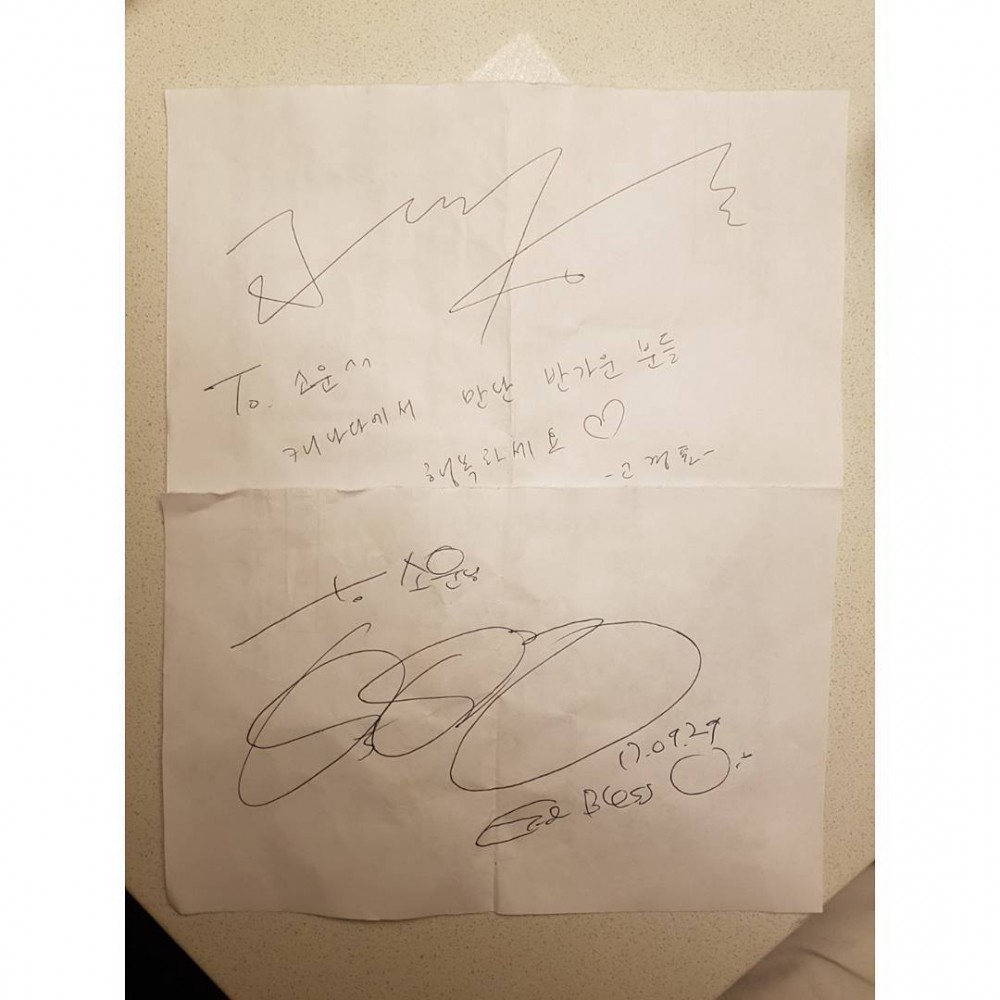 To. 소운씨
캐나다에서 만난 반가운 분들
행복하세요 ♡
-고경표-
To 소운님
17.09.29
God Bless